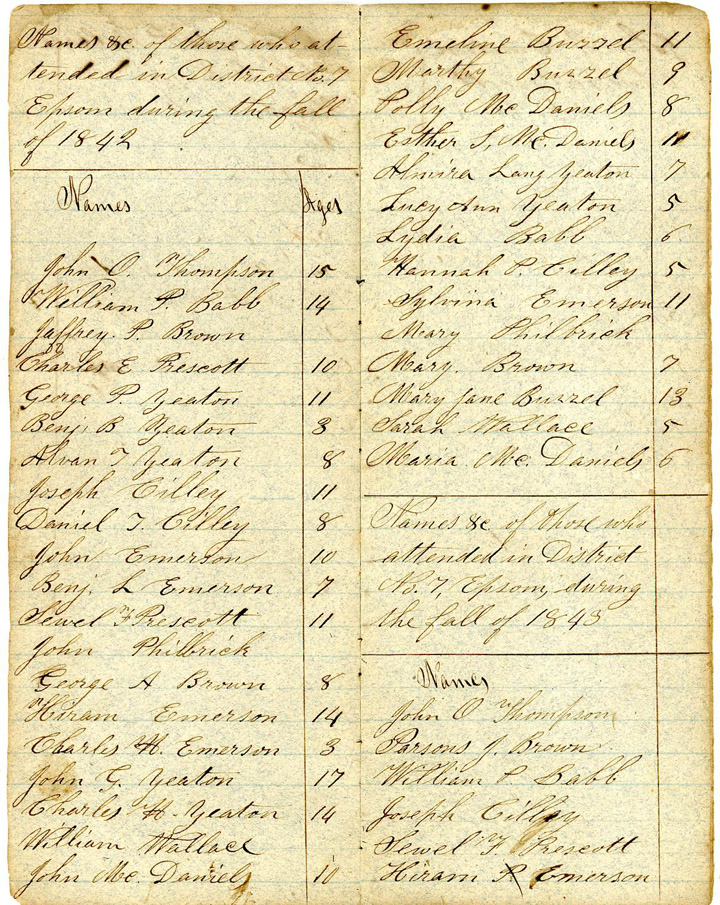 Names &c. of those who at-
tended in District No. 7
Epsom during the fall
of 1842
Names Ages
John O. Thompson 15
William P. Babb 14
Jaffrey P. Brown
Charles E Prescott 10
George P. Yeaton 11
Benj. B Yeaton 3
Alvan T Yeaton 8
Joseph Cilley 11
Daniel T. Cilley 8
John Emerson 10
Benj. L Emerson 7
Sewel F Prescott 11
John Philbrick
George A Brown 8
Hiram Emerson 14
Charles H. Emerson 3
John G. Yeaton 17
Charles H. Yeaton 14
William Wallace
John Mc. Daniels 10
Emeline Buzzel 11
Marthy Buzzel 9
Polly Mc Daniels 8
Esther S, Mc. Daniels 11
Almira Lang Yeaton 7
Lucy Ann Yeaton 5
Lydia Babb 6
Hannah P. Cilley 5
Sylvina Emerson 11
Mary Philbrick
Mary. Brown 7
Mary Jane Buzzel 13
Sarah Wallace 5
Maria Mc. Daniels 6
Names &c of those who
attended in District
No. 7, Epsom, during
the fall of 1843
Names
John O Thompson
Parsons J. Brown
William P Babb
Joseph Cilley
Sewel F. Prescott
Hiram P Emerson